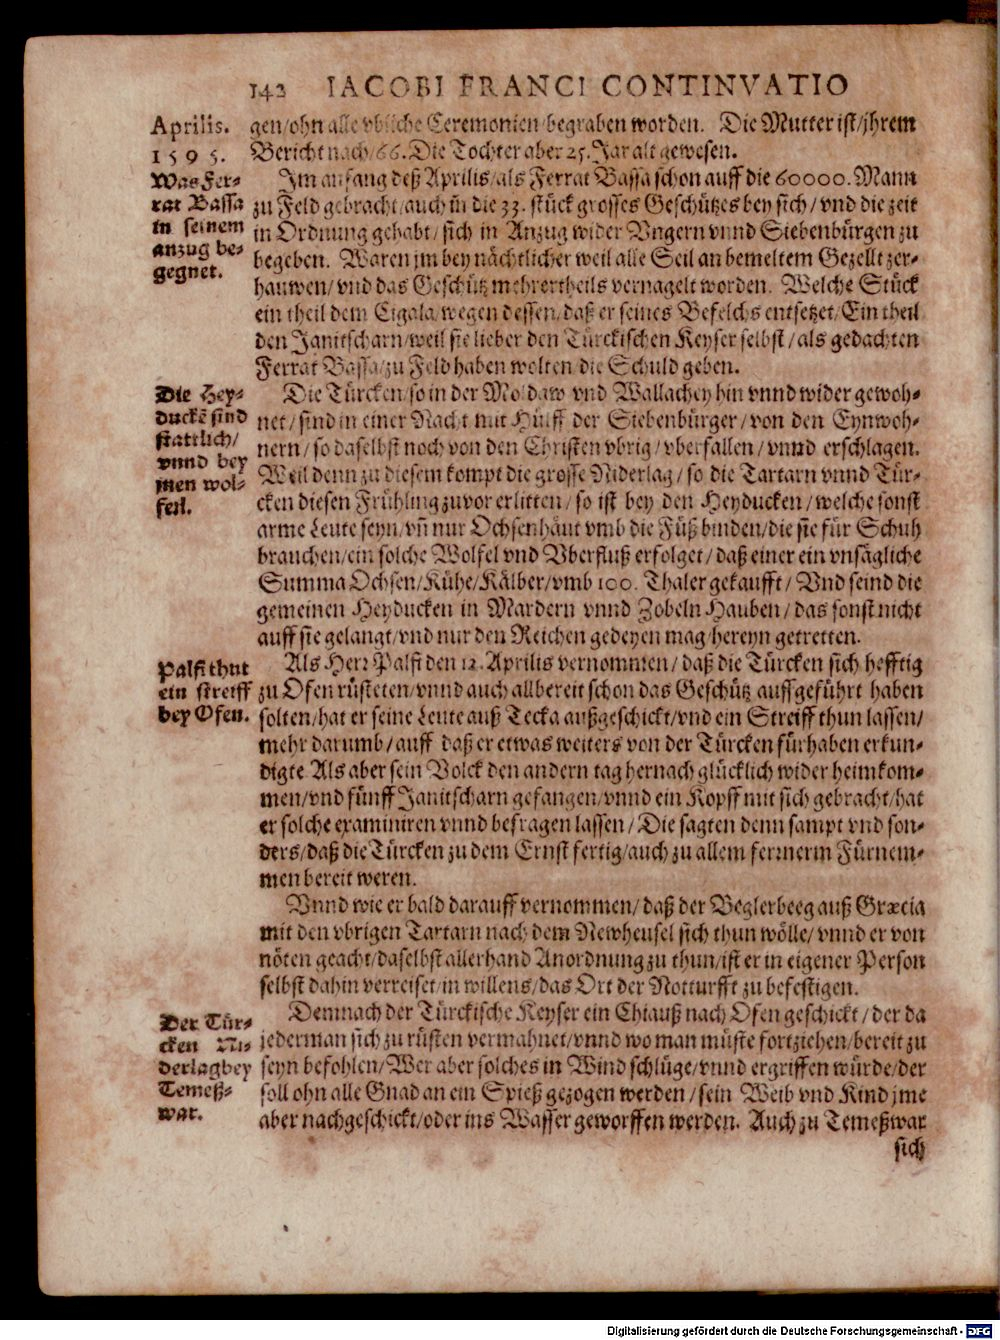 142 IACOBI FRANCI CONTINVATIO
Aprilis.
1595.
gen/ohn alle vbliche Ceremonien begraben worden. Die Mutter ist/jhrem
Bericht nach/66. Die Tochter aber 25. Jar alt gewesen.
Was Fer-
rat Bassa
in seinem
anzug be-
gegnet.
Im anfang deß Aprilis/als Ferrat Bassa schon auff die 60000. Mann
zu Feld gebracht/auch in die 33. stück grosses Geschützes bey sich/vnd die zeit
in Ordnung gehabt/sich in Anzug wider Vngern vnnd Siebenbürgen zu
begeben. Waren jm bey nächtlicher weil alle Seil an bemeltem Gezellt zer-
hauwen/vnd das Geschütz mehrertheils vernagelt worden. Welche Stück
ein theil dem Cigala/wegen dessen/daß er seines Befelchs entsetzet/Ein theil
den Janitscharn/weil sie lieber den Türckischen Keyser selbst/als gedachten
Ferrat Bassa/zu Feld haben wolten/die Schuld geben.
Die Hey-
duckē sind
stattlich/
vnnd bey
jnen wol-
feil.
Die Türcken/so in der Moldaw vnd Wallachey hin vnnd wider gewoh-
net/sind in einer Nacht mit Hülff der Siebenbürger/von den Eynwoh-
nern/so daselbst noch von den Christen vbrig/vberfallen/vnnd erschlagen.
Weil denn zu diesem kompt die grosse Niderlag/so die Tartarn vnnd Tür-
cken diesen Frühling zuvor erlitten/so ist bey den Heyducken/welche sonst
arme Leute seyn/vn̄ nur Ochsenhäut vmb die Füß binden/die sie für Schuh
brauchen/ein solche Wolfel vnd Vberfluß erfolget/daß einer ein vnsägliche
Summa Ochsen/Kühe/Kälber/vmb 100. Thaler gekaufft/Vnd seind die
gemeinen Heyducken in Mardern vnnd Zobeln Hauben/das sonst nicht
auff sie gelangt/vnd nur den Reichen gedeyen mag/hereyn getretten.
Palfi thut
ein streiff
bey Ofen.
Als Herr Palfi den 12. Aprilis vernommen/daß die Türcken sich hefftig
zu Ofen rüsteten/vnnd auch allbereit schon das Geschütz auffgeführt haben
solten/hat er seine Leute auß Tecka außgeschickt/vnd ein Streiff thun lassen/
mehr darumb/auff daß er etwas weiters von der Türcken fürhaben erkun-
digte. Als aber sein Volck den andern tag hernach glücklich wider heimkom-
men/vnd fünff Janitscharn gefangen/vnnd ein Kopff mit sich gebracht/hat
er solche examiniren vnnd befragen lassen/Die sagten denn sampt vnd son-
ders/daß die Türcken zu dem Ernst fertig/auch zu allem fernerm Fürnem-
men bereit weren.
Vnnd wie er bald darauff vernommen/daß der Beglerbeeg auß Græcia
mit den vbrigen Tartarn nach dem Newheusel sich thun wölle/vnnd er von
nöten geacht/daselbst allerhand Anordnung zu thun/ist er in eigener Person
selbst dahin verreiset/in willens/das Ort der Notturfft zu befestigen.
Der Tür-
cken Ni-
derlag bey
Temeß-
war.
Demnach der Türckische Keyser ein Chiauß nach Ofen geschickt/der da
jederman sich zu rüsten vermahnet/vnnd wo man müste fortziehen/bereit zu
seyn befohlen/Wer aber solches in Wind schlüge/vnnd ergriffen würde/der
soll ohn alle Gnad an ein Spieß gezogen werden/sein Weib vnd Kind jme
aber nachgeschickt/oder ins Wasser geworffen werden. Auch zu Temeßwar
sich
Digitalisierung gefördert durch die Deutsche Forschungsgemeinschaft - DFG